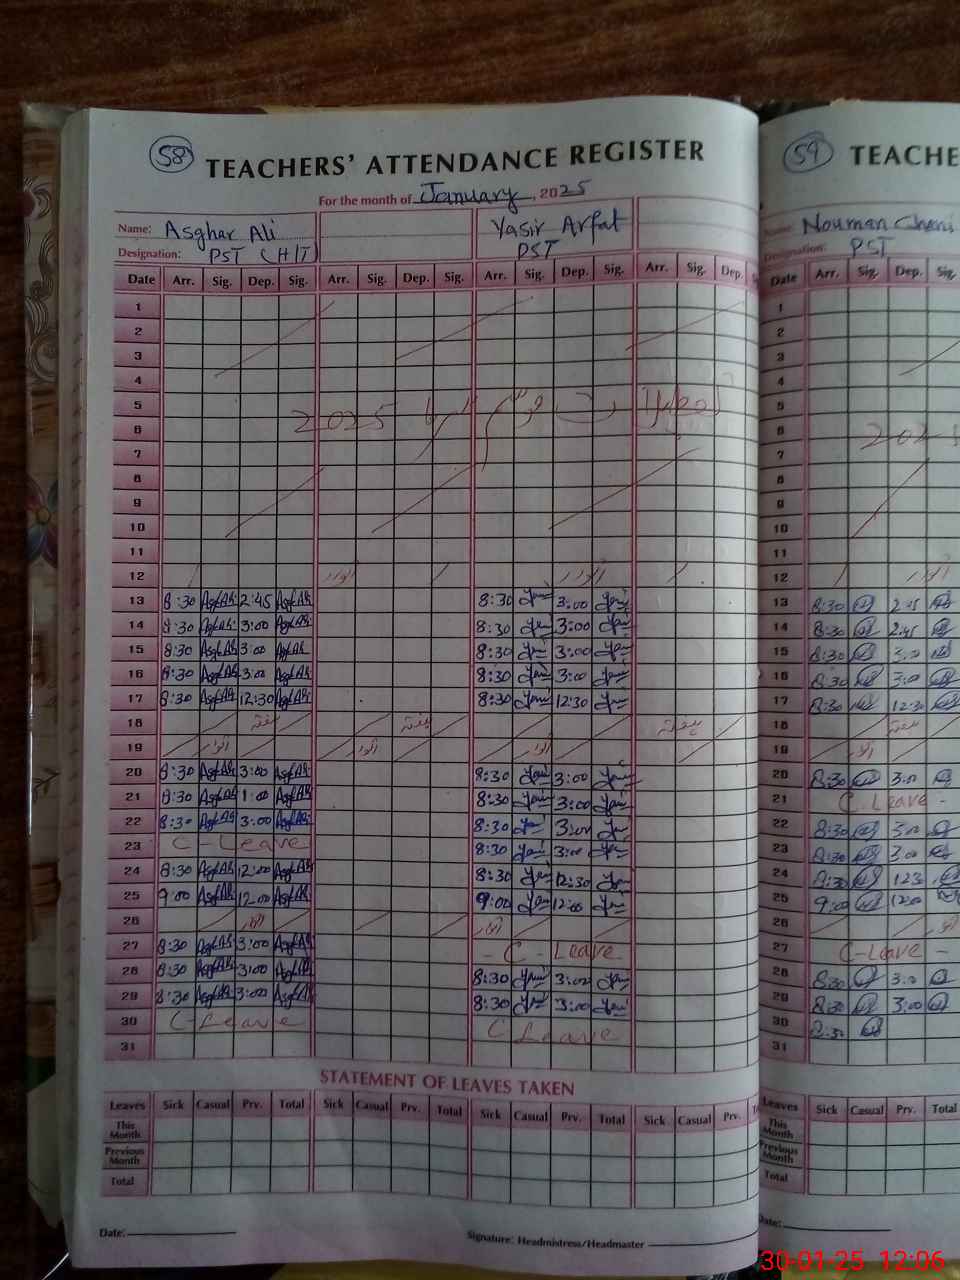 58 TEACHERS' ATTENDANCE REGISTER
For the month of January, 2025
Name: Asghar Ali Yasir Arfat
Designation: PST (H/T) PST
Date Arr. Sig. Dep. Sig. Arr. Sig. Dep. Sig. Arr. Sig. Dep. Sig. Arr. Sig. Dep.
1
2
3
4
5
2025
6
7
8
9
10
11
12 اتوار اتوار
13 8:30 Asghar 2:45 Asghar 8:30 3:00
14 8:30 Asghar 3:00 Asghar 8:30 3:00
15 8:30 Asghar 3:00 Asghar 8:30 3:00
16 8:30 Asghar 3:00 Asghar 8:30 3:00
17 8:30 Asghar 12:30 Asghar 8:30 12:30
18 ہفتہ ہفتہ ہفتہ
19 اتوار اتوار اتوار
20 8:30 Asghar 3:00 Asghar 8:30 3:00
21 8:30 Asghar 1:00 Asghar 8:30 3:00
22 8:30 Asghar 3:00 Asghar 8:30 3:00
23 C-Leave 8:30 3:00
24 8:30 Asghar 12:00 Asghar 8:30 12:30
25 9:00 Asghar 12:00 Asghar 9:00 12:00
26
27 8:30 Asghar 3:00 Asghar - C - Leave
28 8:30 Asghar 3:00 Asghar 8:30 3:00
29 8:30 Asghar 3:00 Asghar 8:30 3:00
30 C-Leave C Leave
31
STATEMENT OF LEAVES TAKEN
Leaves Sick Casual Prv. Total Sick Casual Prv. Total Sick Casual Prv. Total Sick Casual Prv.
This Month
Previous Month
Total
Date:
Signature: Headmistress/Headmaster
59 TEACHE
Name: Nouman
Designation: PST
Date Arr. Sig. Dep. Sig
1
2
3
4
5
6 2025
7
8
9
10
11
12
13 8:30 2:45
14 8:30 2:45
15 8:30 3:00
16 8:30 3:00
17 8:30 12:30
18 ہفتہ
19 اتوار
20 8:30 3:00
21 C-Leave -
22 8:30 3:00
23 8:30 3:00
24 8:30 12:30
25 9:00 12:00
26
27 C-Leave -
28 8:30 3:00
29 8:30 3:00
30 8:30
31
Leaves Sick Casual Prv. Total
This Month
Previous Month
Total
Date:
30-01-25 12:06